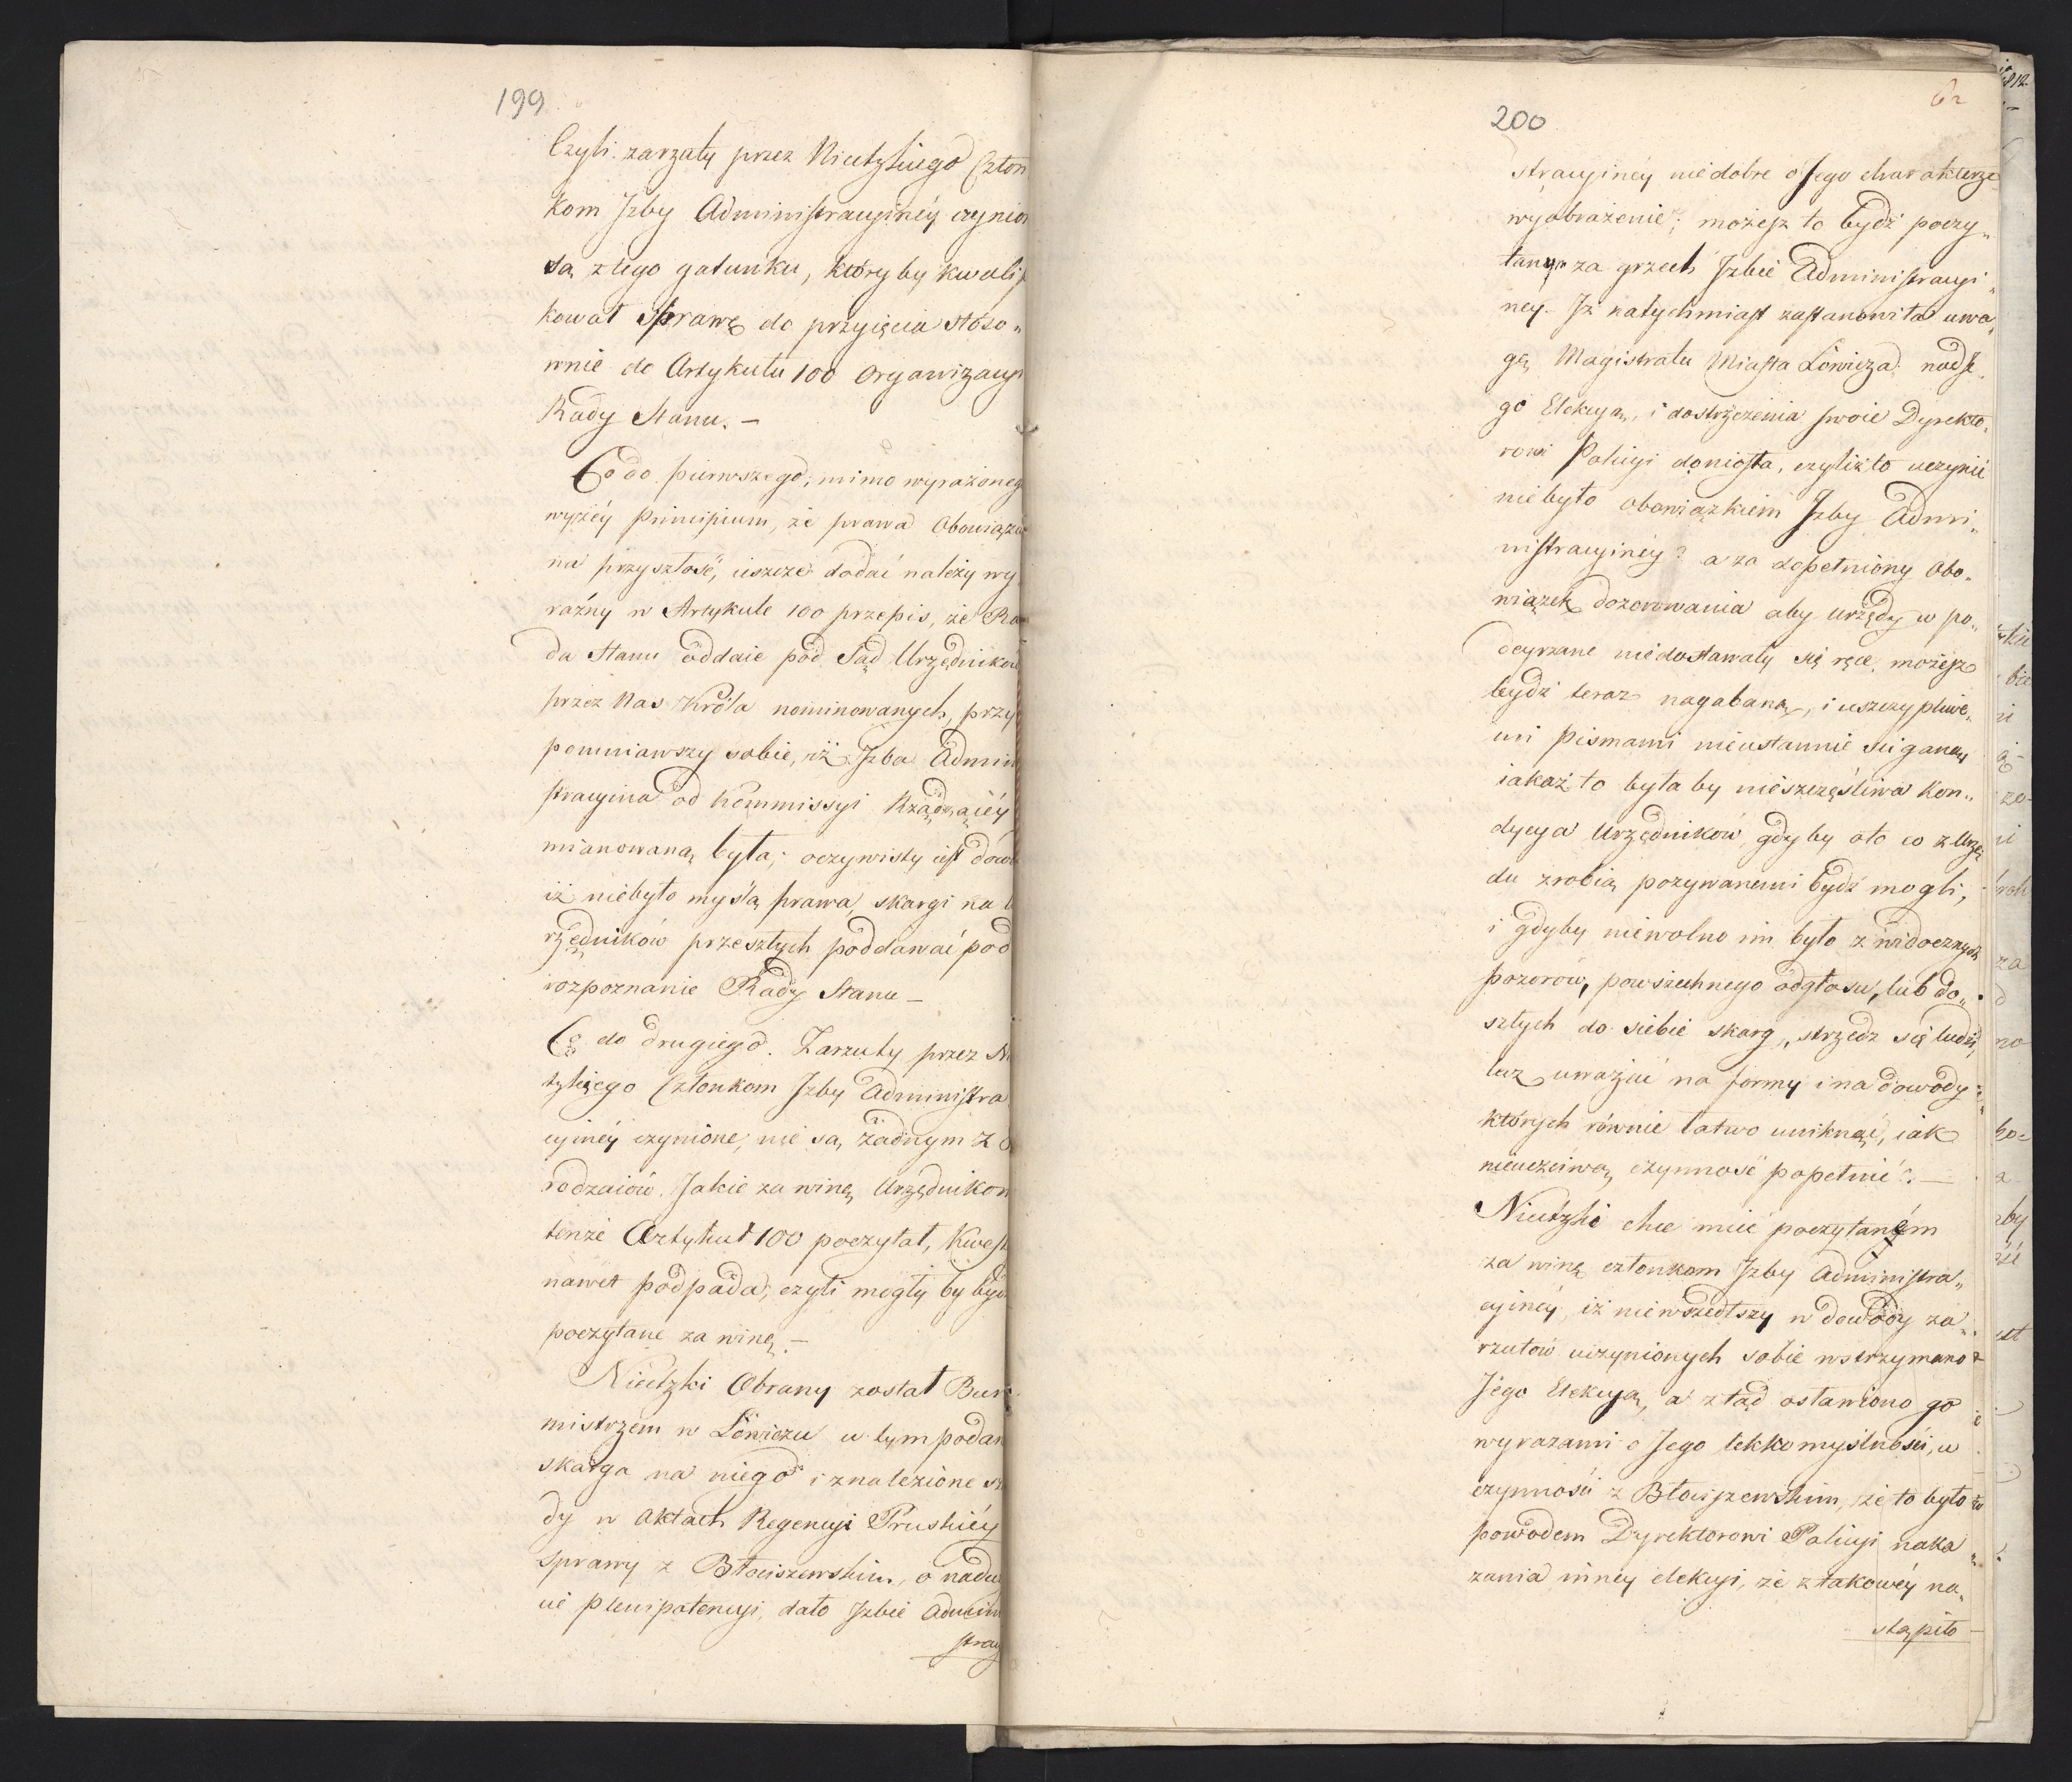 199
Czyli zarzuty przez Nieetyskiego Człon
kom Jzby Administracyinéy czynio
są z tego gatunku, któryby kwalifi
kował Sprawę do przyięcia stóso„
wnie do Artykułu 100 Organizacyi
Rady Stanu. —
Co do pierwszego; mimo wyrażoneg
wyżéy Principium, że prawa Obowiązu
na przyszłość, ieszcze dodać należy wy
raźny w Artykule 100 przepis, że Ra
da Stanu oddaie pod Sąd Urzędników
przez Nas Króla nominowanych, przy
pomniawszy sobie, iż Jzba Admini
stracyina od Kommissyi Rządzącéy
mianowaną była; oczywisty iest dowó
iż niebyło myślą prawa, skargi na U
rzędników przeszłych poddawać pod
rozpoznanie Rady Stanu —
Co do drugiego. Zarzuty przez Ni
Członkom Jzby Administra
cyinéy czynione, nie są żadnym z
rodzaiów. Jakie za winę Urzędnikom
tenże Artykuł 100 poczytał, Kwest
nawet podpada; czyli mogły by bydź
poczytane za winę. —
Nieetzki Obrany został Bur
mistrzem w Łowiczu w tym podan
skarga na niego i znalezione śl
dy w Aktach Regencyi Pruskiéy
sprawy z Błociszewskim, o nadu
cie plenipotencyi, dało Jzbie Admini
stracy
200
62
stracyinéy niedobre o Jego charakterze
wyobrażenie; możesz to bydź poczy„
tanym za grzech Jzbie Administracyi„
ney. Jż natychmiast zastanowiła uwa„
gę Magistratu Miasta Łowicza nad Je„
go Elekcyą, i dostrzeżenia swoie Dyrekto„
rowi Policyi doniosła, czyliż to uczynić
niebyło obowiązkiem Jzby Admi„
nistracyinéy? a za dopełniony Obo„
wiązek dozorowania aby urzędy w po„
deyrzane niedostawały się ręce, możesz
bydź teraz nagabaną, i uszczypliwe„
mi pismami nieustannie ściganą
iakaż to byłaby nieszczęśliwa Kon„
dycya Urzędników, gdyby oto co z Urzę
du zrobią pozywanemi bydź mogli,
i gdyby niewolno im było z widocznych
pozorów, powszechnego odgłosu, lub do„
szłych do siebie skarg, strzedz się ludzi,
lecz uważać na formy i na dowody
których równie łatwo uniknąć, iak
nieuczciwą czynność popełnić? —
Nieetzki chce mieć poczytaném
za winę członkom Jzby Administra„
cyinéy, iż niewszedłszy w dowody za„
rzutów uczynionych sobie wstrzymano
Jego Elekcyą, a ztąd osławiono go
wyrazami o Jego lekkomyślności, w
czynności z Błociszewskim, że to było
powodem Dyrektorowi Policyi naka„
zania innéy elekcyi, że z takowéy na„
stąpiło